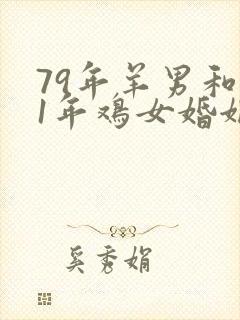 79年羊男和
1年鸡女婚姻
奚秀娟